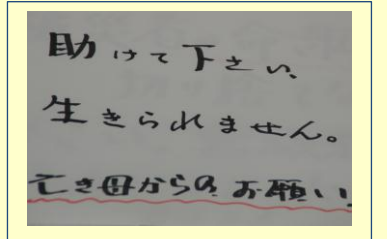 助けて下さい、
生きられません。
亡き母からのお願い